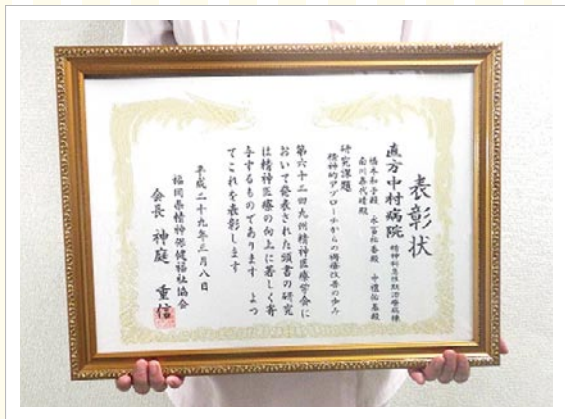 表彰状
直方中村病院 精神科急性期治療病棟
橋本和子殿 永富祐香殿 中壇佑基殿
南川真代晴殿
研究課題
精神的アプローチからの病棟改善の歩み
第六十二回九州精神医療学会に
おいて発表された頭書の研究
は精神医療の向上に著しく寄
与するものであります よつ
てこれを表彰します
平成二十九年三月八日
福岡県精神保健福祉協会
会長 神庭 重信